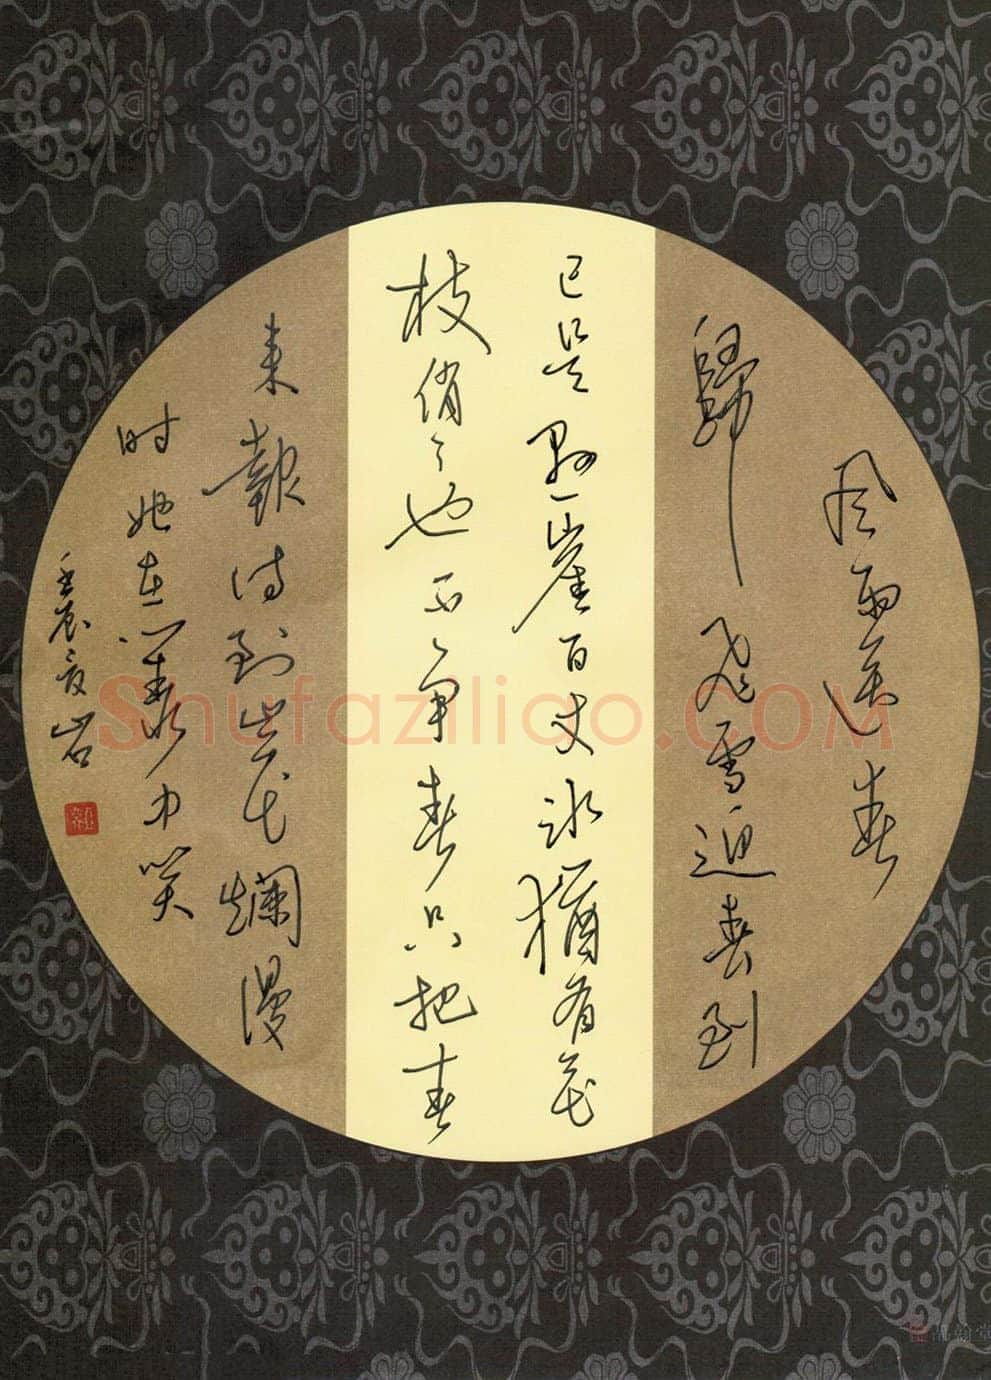 风雨送春
歸飞雪迎春到
已是悬崖百丈冰猶有花
枝俏々也不争春只把春
来報待到山花爛漫
时她在丛中笑
壬辰 岩
Shufaziliao.COM
翰堂